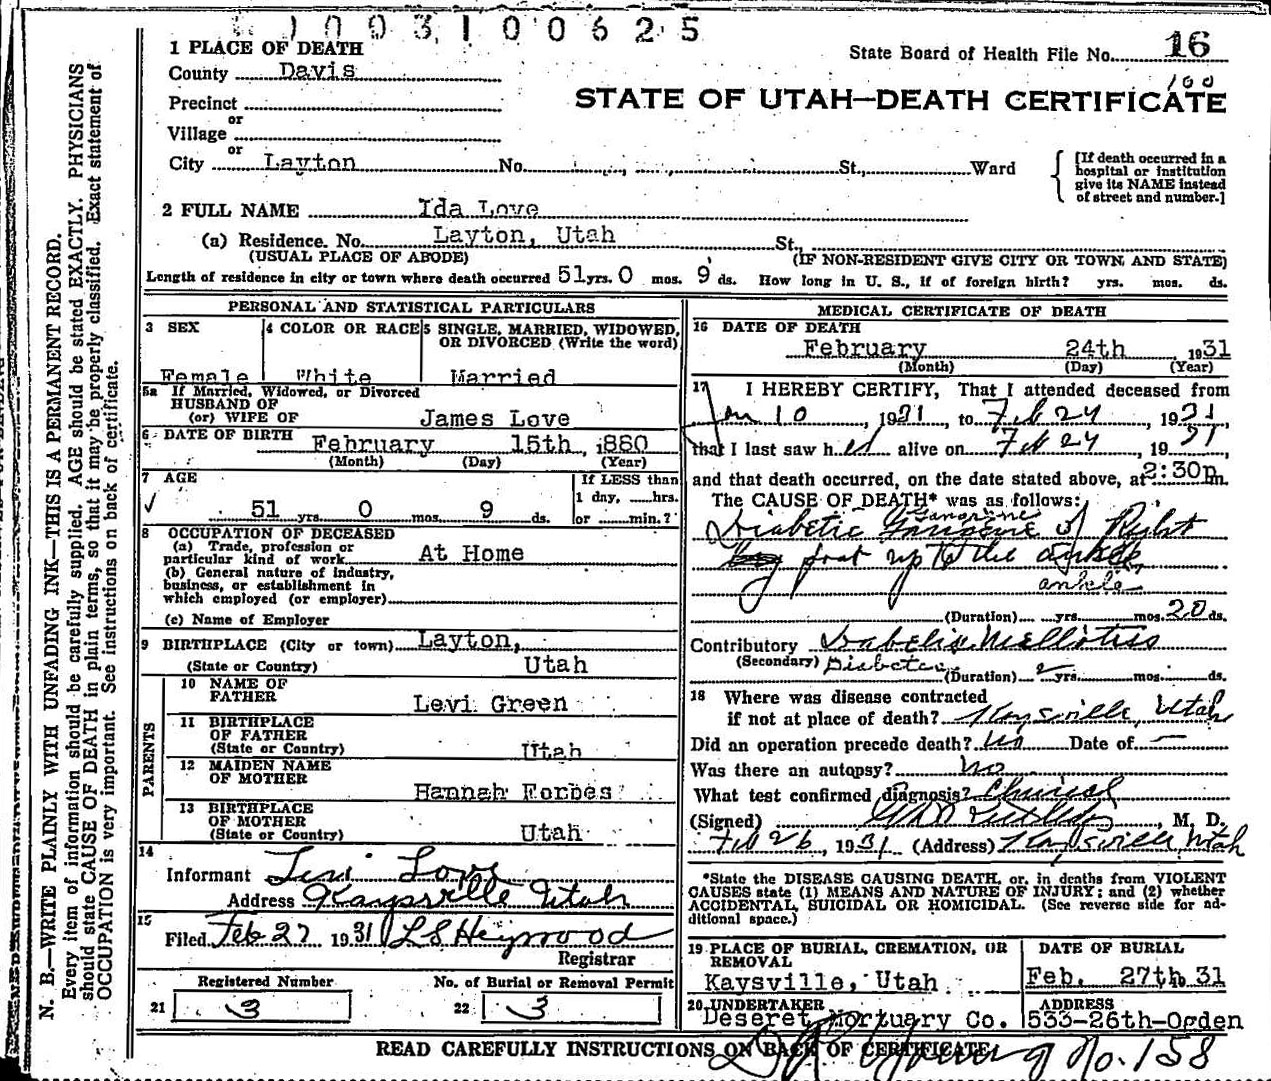 1 0 0 3 1 0 0 6 2 5
1 PLACE OF DEATH
State Board of Health File No. 16
County Davis
100
STATE OF UTAH—DEATH CERTIFICATE
Precinct
or
Village
or
City Layton No. St., Ward
[If death occurred in a hospital or institution give its NAME instead of street and number.]
2 FULL NAME Ida Love
(a) Residence. No. Layton, Utah St.,
(USUAL PLACE OF ABODE) (IF NON-RESIDENT GIVE CITY OR TOWN AND STATE)
Length of residence in city or town where death occurred 51 yrs. 0 mos. 9 ds. How long in U. S., if of foreign birth? yrs. mos. ds.
PERSONAL AND STATISTICAL PARTICULARS
3 SEX
Female
4 COLOR OR RACE
White
5 SINGLE, MARRIED, WIDOWED, OR DIVORCED (Write the word)
Married
5a If Married, Widowed, or Divorced
HUSBAND OF
(or) WIFE OF James Love
6 DATE OF BIRTH February 15th, 1880
(Month) (Day) (Year)
7 AGE
51 yrs. 0 mos. 9 ds.
If LESS than
1 day, hrs.
or min.?
8 OCCUPATION OF DECEASED
(a) Trade, profession or
particular kind of work At Home
(b) General nature of industry,
business, or establishment in
which employed (or employer)
(c) Name of Employer
9 BIRTHPLACE (City or town) Layton,
(State or Country) Utah
PARENTS
10 NAME OF
FATHER Levi Green
11 BIRTHPLACE
OF FATHER
(State or Country) Utah
12 MAIDEN NAME
OF MOTHER Hannah Forbes
13 BIRTHPLACE
OF MOTHER
(State or Country) Utah
14
Informant Levi Love
Address Kaysville Utah
15
Filed Feb 27 1931 L S Heywood
Registrar
Registered Number No. of Burial or Removal Permit
21 3 22 3
MEDICAL CERTIFICATE OF DEATH
16 DATE OF DEATH
February 24th, 1931
(Month) (Day) (Year)
17 I HEREBY CERTIFY, That I attended deceased from
Jan 10, 1931, to Feb 24, 1931,
that I last saw her alive on Feb 24, 1931,
and that death occurred, on the date stated above, at 2:30p m.
The CAUSE OF DEATH* was as follows:
Gangrene
Diabetic Gangrene of Right
foot up to the ankle
ankle
(Duration) yrs. mos. 20 ds.
Contributory Diabetis Mellotiss
(Secondary) Diabetes (Duration) 2 yrs. mos. ds.
18 Where was disease contracted
if not at place of death? Kaysville, Utah
Did an operation precede death? No Date of —
Was there an autopsy? no
What test confirmed diagnosis? Clinical
(Signed) , M. D.
Feb 26, 1931 (Address) Kaysville Utah
*State the DISEASE CAUSING DEATH, or, in deaths from VIOLENT
CAUSES state (1) MEANS AND NATURE OF INJURY; and (2) whether
ACCIDENTAL, SUICIDAL OR HOMICIDAL. (See reverse side for ad-
ditional space.)
19 PLACE OF BURIAL, CREMATION, OR
REMOVAL
Kaysville, Utah
DATE OF BURIAL
Feb. 27th 31
20 UNDERTAKER
Deseret Mortuary Co.
ADDRESS
533-26th-Ogden
READ CAREFULLY INSTRUCTIONS ON BACK OF CERTIFICATE
No. 158
N. B.—WRITE PLAINLY WITH UNFADING INK—THIS IS A PERMANENT RECORD.
Every item of information should be carefully supplied. AGE should be stated EXACTLY. PHYSICIANS
should state CAUSE OF DEATH in plain terms, so that it may be properly classified. Exact statement of
OCCUPATION is very important. See instructions on back of certificate.